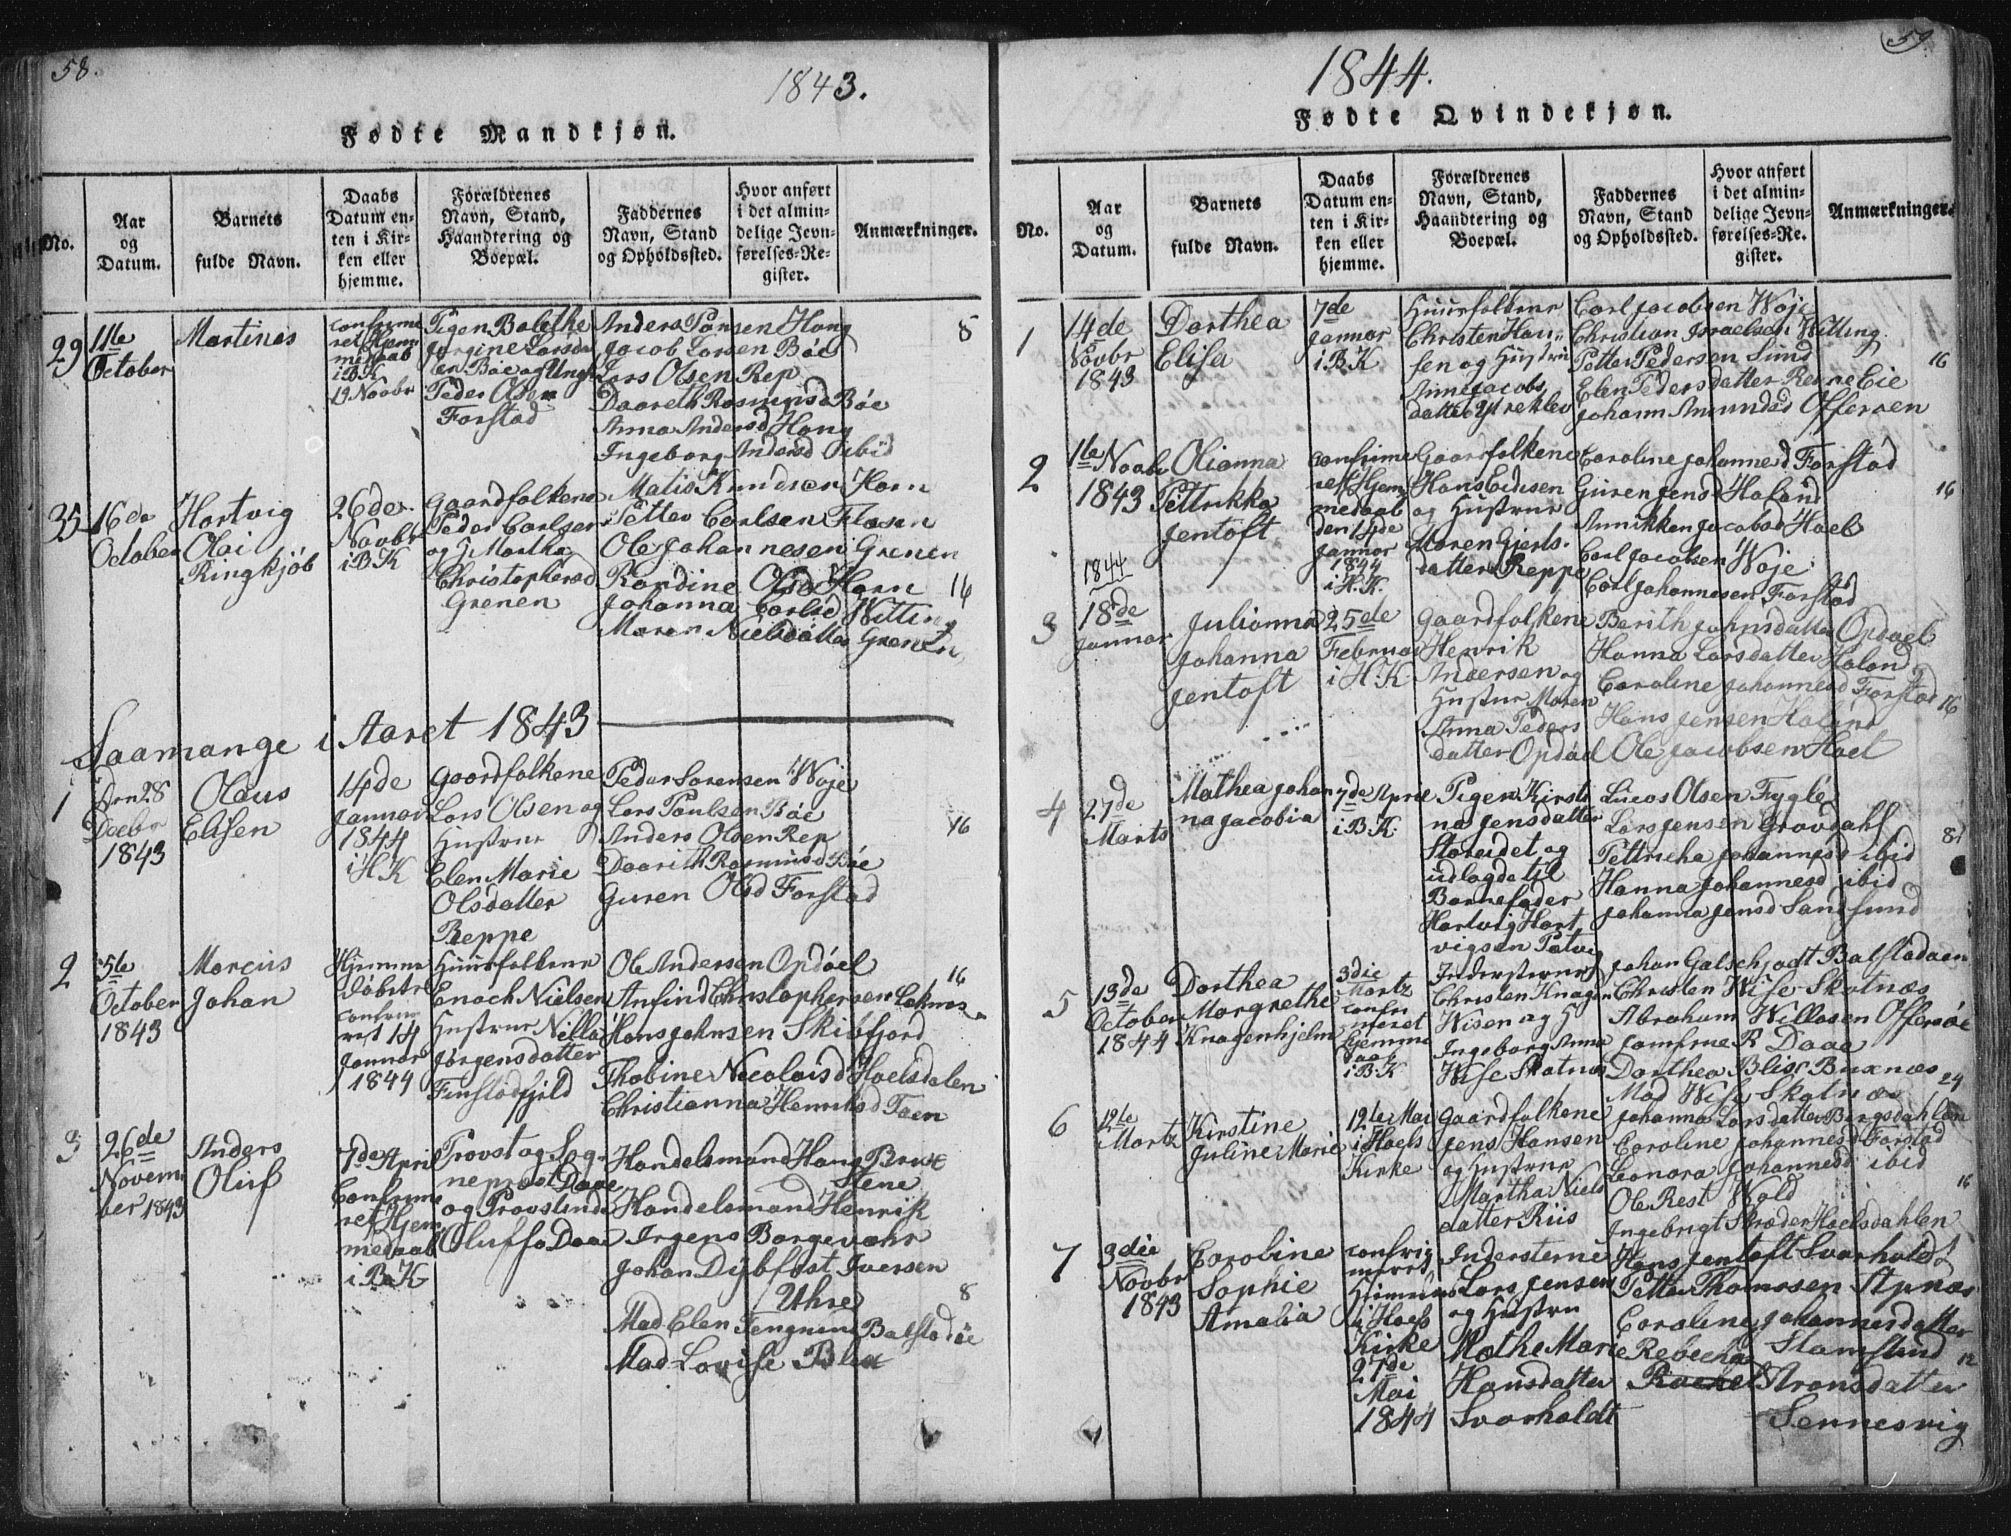 58.
1843.
Fødte Mandkjøn.
No.
Aar
og
Datum.
Barnets
fulde Navn.
Daabs
Datum en-
ten i Kir-
ken eller
hjemme.
Forældrenes
Navn, Stand,
Haandtering og
Boepæl.
Faddernes
Navn, Stand
og Opholdssted.
Hvor anført
i det almin-
delige Jevn-
førelses-Re-
gister.
Anmærkninger.
29
11te
October
Martines
confirme
ret Hjem
medaab
i B K
19 Novbr
Pigen Bolethe
Jørgine Larsda
Peder Olsen
Forstad
Anders Hong
Jacob Larsen Böe
Lars Olsen Rep
Daareth Rasmusd Böe
Anna Andersd Hong
Ingeborg Andersd ibid
8
35
16de
October
Hartvig
Olai
Ringkjöb
26de
Novbr
i B K
Gaardfolkene
Peder Carlsen
og H Martha
Christophersd
Grenen
Matis Knudsen Horn
Petter Carlsen Flosen
Ole Johannesen Grenen
Randine Olsd Horn
Johanna Carlsd Witting
Maren Nielsdatter Grenen
14
Saamange i Aaret 1843
1
Den 28
Decbr
1843
Olaus
Elisen
14de
Januar
1844
i H K
Gaardfolkene
Lars Olsen og
Hustrue
Elen Marie
Olsdatter
Reppe
Peder Sorensen Woje
Lars Poulsen Böe
Anders Olsen Rep
Daarith Rasmusd Böe
Guren Olsd Forstad
16
2
5te
October
1843
Marcius
Johan
Hjemme
döbt
confirme
ret 14
Januar
1844
Huusfolkene
Enoch Nielsen
Hustrue Nilla
Jørgensdatter
Finstadfjeld
Ole Andersen Opdöel
Anfind Christophersen Leknes
Hans Johnsen Skiöfjord
Thobine Nicolaisd Hoelsdalen
Christianna Henriksd Taen
16
3
26de
Novem
ber 1843
Anders
Oluf
7de April
Confirme
ret Hjem
medaab
i B K
Provst og Sog-
neprest Daae
og Provstinde
Oluffa Daae
Handelsmand Hans Brix
Stene
Handelsmand Henrik
Irgens Borgevær
Johan Dÿbfest Iversen
Uhre
Mad Elen Fengnum Balstadöe
Mad Lovise Blix
8
59
1844.
Fødte Qvindekjøn.
No.
Aar
og
Datum.
Barnets
fulde Navn.
Daabs
Datum en-
ten i Kir-
ken eller
hjemme.
Forældrenes
Navn, Stand,
Haandtering og
Boepæl.
Faddernes
Navn, Stand
og Opholdssted.
Hvor anført
i det almin-
delige Jevn-
førelses-Re-
gister.
Anmærkninger.
1
14de
Novbr
1843
Dorthea
Elisa
7de
Januar
i B K
Huusfolkene
Christen Han-
sen og Hustru
Anne Jacobs
datter
Carl Jacobsen Woje
Christian Israelsen Witting
Petter Pedersen Sund
Elen Pedersdatter Repne Eie
Johann Amundsd Offersen
16
2
1te Novbr
1843
Olianna
Pettrikka
Jentoft
confirme
ret Hjem
medaab
den 14de
Januar
1844
i H. K.
Gaardfolkene
Hans Edisen
og Hustrue
Maren Gjerts-
datter Reppe
Caroline Johannesd Forstad
Guren Jensd Holand
Annikken Jacobsd Hoel
Carl Jacobsen Woje
Carl Johannesen Forstad
16
3
1844
18de
Januar
Julianna
Johanna
Jentoft
25de
Februar
i H. K.
Gaardfolkene
Henrik
Andersen og
Hustrue Maren
Anna Peders
datter Opdöel
Berith Johnsdatter Opdoel
Hanna Larsdatter Holand
Caroline Johannesd Forstad
Hans Jensen Holand
Ole Jacobsen Hoel
16
4
27de
Marts
Mathea Johan
na Jacobia
7de April
i B. K.
Pigen Kirsti
na Jensdatter
Storeidet og
udlagde til
Barnefader
Hartvig Hart
vigsen
Lucos Olsen Fygle
Lars Jensen Grovdahl
Pettricka Johannesd ibid
Hanna Johannesd ibid
Johanna Jensd Sandsund
8
5
13de
October
1844
Dorthea
Margrethe
Knagenhjelm
3die
Martz
confir
meret
hjemme
daab
i B K
Inderstene
Christen Knagen
Wisen og H
Ingeborg Anna
Wise Skotnæs
Johan Galschjødt Balstadøen
Christen Wise Skotnæs
Abraham Willasen Offersöe
Jomfrue R Daae
Dorthea Blix Buxnæs
Mad Wise Skotnæs
24
6
12te
Martz
Kirstine
Juline Marie
12te Mai
i Hoels
Kirke
Gaardfolkene
Jens Hansen
og Hustrue
Martha Niels
datter Riis
Johanna Larsdatter Bergsdahlen
Caroline Johannesd Forstad
Leonora Johannesd ibid
Ole Rest Wold
Ingebrigt Skræder Hoelsdahlen
16
7
3die
Novbr
1843
Caroline
Sophie
Amalia
i Hoels
Kirke
27de
Mai
1844
Inderstene
Lars Jensen
og Hustru
Mathe Marie
Hansdatter
Svarholdt
Hans Jentoft Svarholdt
Petter Thomssen Stpnæs
Caroline Johannesdatter
Stamsund
Rebecka
Aronsdatter
Sennesvig
12